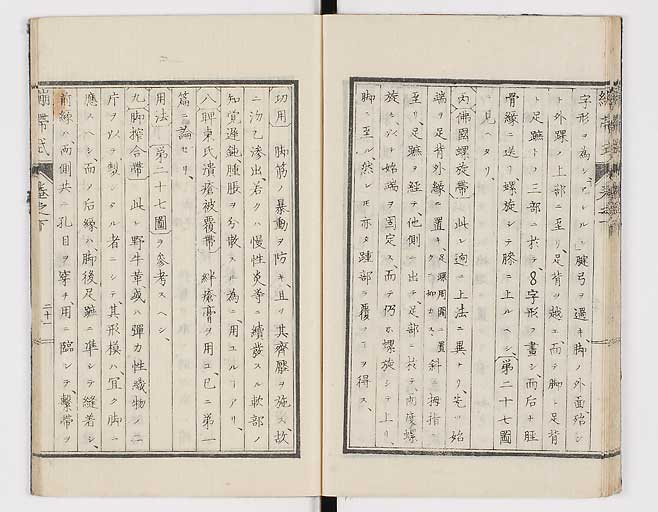 字形ヲ為シアレルレ腱弓ヲ還キ脚ノ外面殆ン
ト外踝ノ上部ニ至リ足背ヲ越エ而テ脚ト足背
ト足蹠トノ三部ニ於テ8字形ヲ畫シ而后キ脛
骨縁ニ送リ螺旋シテ膝ニ上ルヘシ第二十七圖
ニ見ヘタリ
丙佛國螺旋帶 此レ逈ニ上法ニ異ナリ先ツ始
端ヲ足背外縁ニ置キ 斜ニ拇指ニ
至リ足蹠ヲ経テ他側ニ出テ足部ニ於テ両度螺
旋シ以ト始端ヲ固定ス而テ仍ホ螺旋シテ上リ
脚ニ至ル然レモ亦タ踵部ヲ覆フヿヲ得ス
功用 脚筋ノ暴動ヲ防キ且リ其齊壓ヲ施ス故
ニ汐乙滲出若クハ慢性炎等ニ續發スル軟部ノ
知覚遲鈍腫脹ヲ分散スル為ニ用ユルヿアリ
八脾東氏潰瘡被覆帶 絆瘡膏ヲ用コ已ニ第一
篇ニ論セリ
用法 第二十七圖ヲ參考スヘシ
九脚搾合帶 此レ野牛革或ハ彈力性織物ノ二
片ヲ以ヲ製シタル者ニシテ其形模ハ冝ク脚ニ
應スヘシ而ノ后縁ハ脚後足蹠ニ準シテ縫着シ
前縁ハ両側共ニ孔目ヲ穿チ用ニ臨ンテ繋帶ヲ
繃帶式 巻之下 二十一